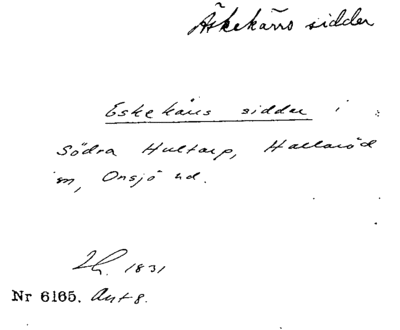 Äskekärrs sidder
Eskekärs sidder i
Södra Hultarp, Hallaröd
sn, Onsjö hd.
1831
Nr 6165. Ant 8.